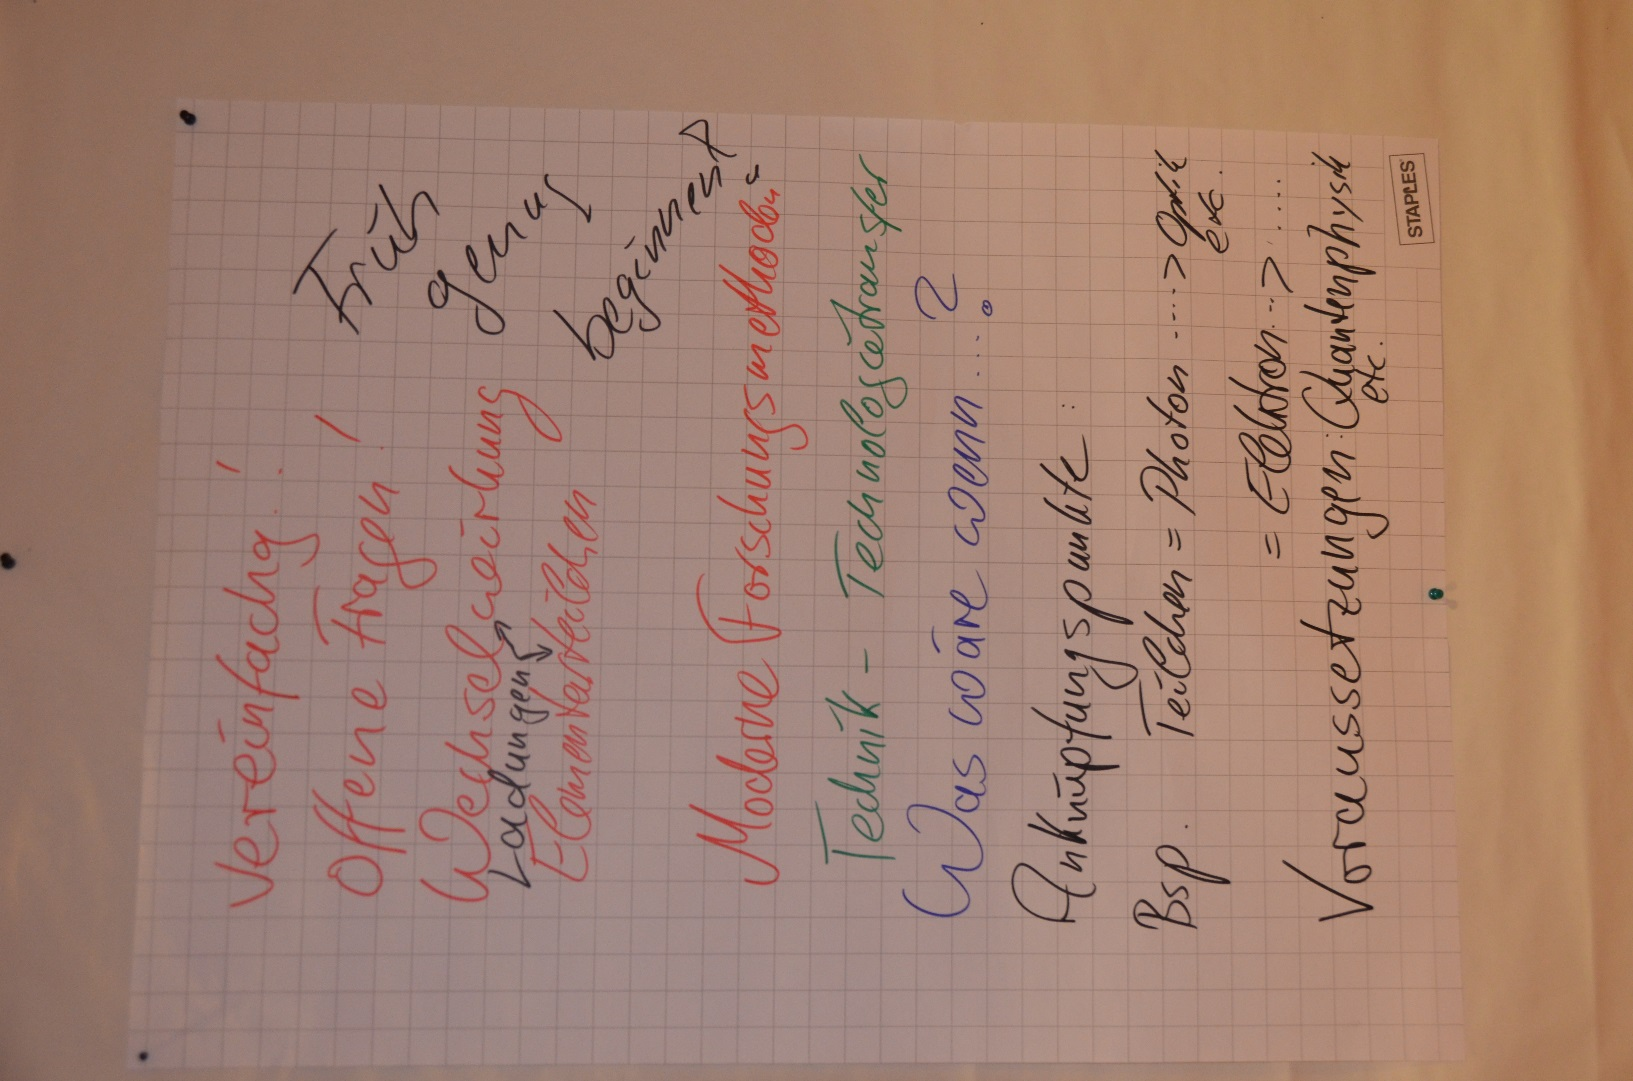 Vereinfachg.!
Offene Fragen!
Früh
genug
beginnen
Wechselwirkung
Ladungen
Elementarteilchen
Moderne Forschungsmethoden
Technik - Technologietransfer
Was wäre wenn....?
Anknüpfungspunkte:
Bsp. Teilchen = Photon ----> Optik
etc.
= Elektron ---> .....
Voraussetzungen: Quantenphysik
etc.
STAPLES